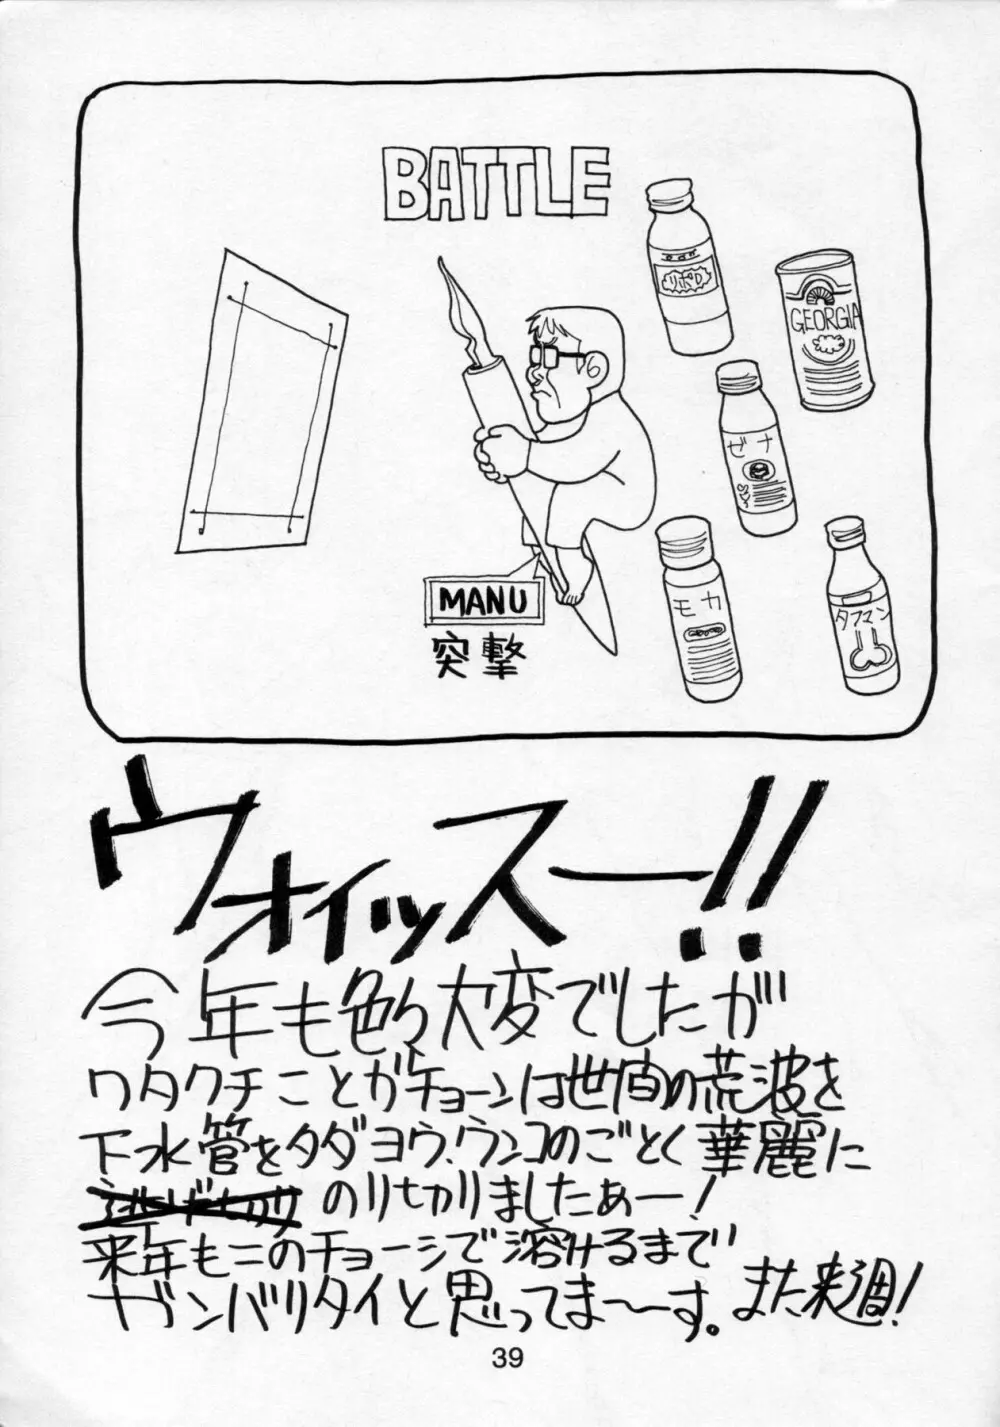 BATTLE
リポD
GEORGIA
ゼナ
モカ
タフマン
MANU
突撃
ウォイッスー!!
今年も色々大変でしたが
ワタクチことガチョーンは世間の荒波を
下水管をタダヨウ.ウンコのごとく華麗に
のりきりましたぁー!
来年もこのチョーシで溶けるまで
ガンバリタイと思ってま〜す。また来週!
39